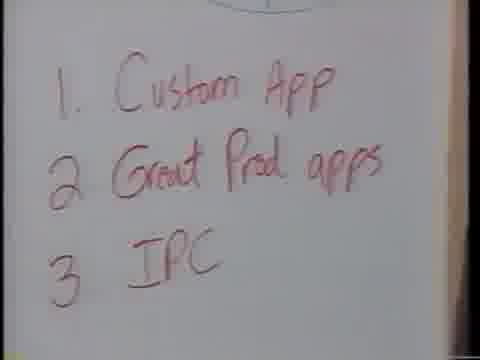 1. Custom App
2 Great Prod. apps
3 IPC